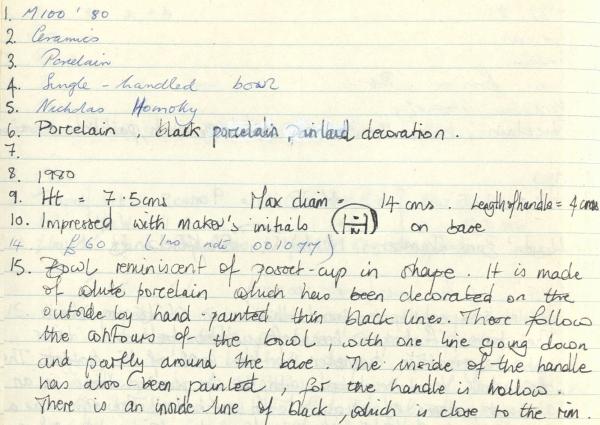 1. M100 '80
2. Ceramics
3. Porcelain
4. Single-handled bowl
5. Nicholas Homoky
6. Porcelain, black porcelain, inlaid decoration.
7.
8. 1980
9. Ht = 7.5cms Max diam = 14 cms. Length of handle = 4 cms
10. Impressed with maker's initials on base
14. £60 (Inv note 001077)
15. Bowl reminiscent of posset-cup in shape. It is made
of white porcelain which has been decorated on the
outside by hand-painted thin black lines. These follow
the contours of the bowl with one line going down
and partly around the base. The inside of the handle
has also been painted, for the handle is hollow.
There is an inside line of black, which is close to the rim.